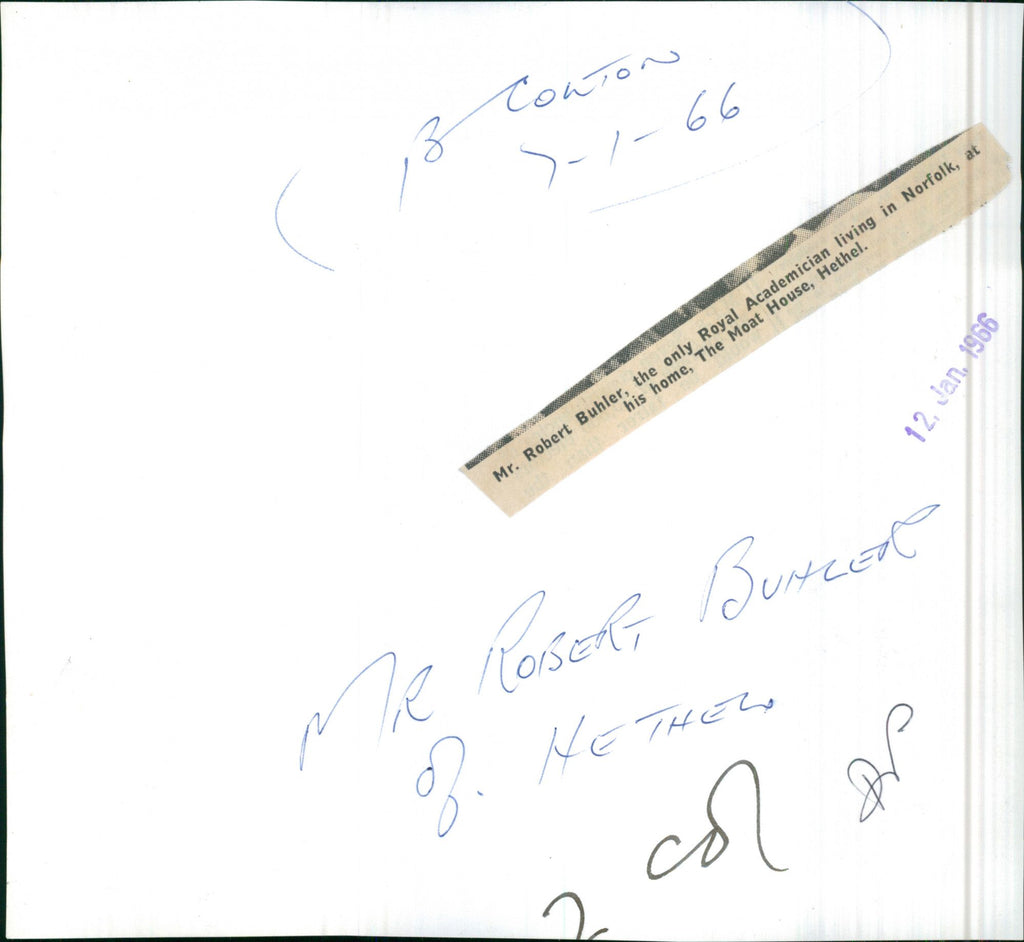 B COWTON
7-1-66
Mr. Robert Buhler, the only Royal Academician living in Norfolk, at
his home, The Moat House, Hethel.
12. Jan. 1966
MR ROBERT BUHLER
of. HETHEL
2 col